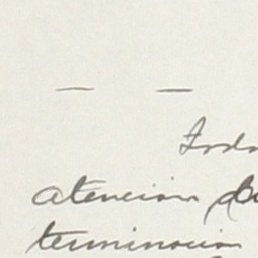 — —
Toda
atencion
terminacion